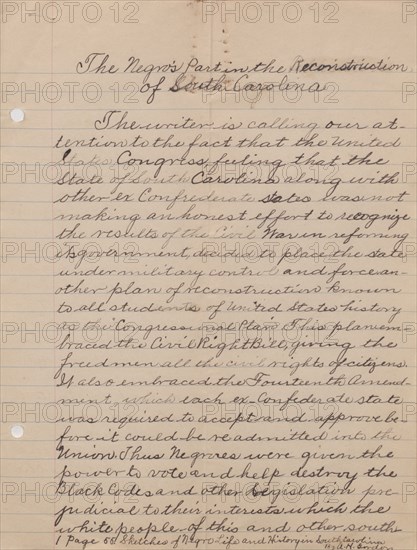 The Negro's Part in the Reconstruction
of South Carolina
The writer is calling our at-
tention to the fact that the United
States Congress, feeling that the
State of South Carolina along with
other ex Confederate states was not
making an honest effort to recognize
the results of the Civil War in reforming
its government, decided to place the state
under military control and force an-
other plan of reconstruction known
to all students of United States history
as the Congressional Plan. This plan em-
braced the Civil Right Bill, giving the
freedmen all the civil rights of citizens.
It also embraced the Fourteenth Amend-
ment, which each ex-Confederate state
was required to accept and approve be-
fore it could be readmitted into the
Union. Thus Negroes were given the
power to vote and help destroy the
Black Codes and other legislation pre-
judicial to their interests which the
white people of this and other south-
1 Page 58 Sketches of Negro Life and History in South Carolina
A.H. Gordon
PHOTO 12